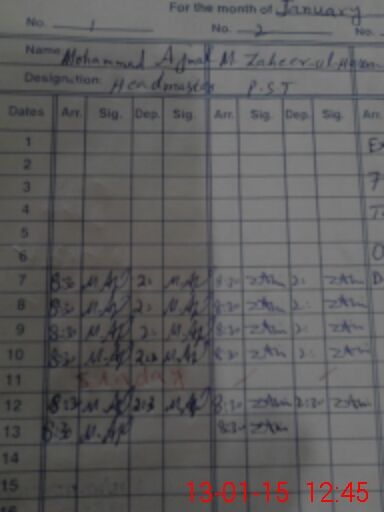 For the month of January
No. 1 No. 2 No.
Name Mohammad Ajmal M Zaheer-ul-Hassan
Designation: Headmaster P.S.T
Dates Arr. Sig. Dep. Sig. Arr. Sig. Dep. Sig. Arr.
1
2
3
4
5
6
7 8:30 M.Aj 2: M.Aj 8:30 ZAm 2: ZAm
8 8:30 M.Aj 2: M.Aj 8:30 ZAm 2: ZAm
9 8:30 M.Aj 2: M.Aj 8:30 ZAm 2: ZAm
10 8:30 M.Aj M.Aj 8:30 ZAm 2: ZAm
11 Sunday
12 8:30 M.Aj 2:30 M.Aj 8:30 ZAm 2:30 ZAm
13 8:30 M.Aj 8:30 ZAm
14
15
13-01-15 12:45